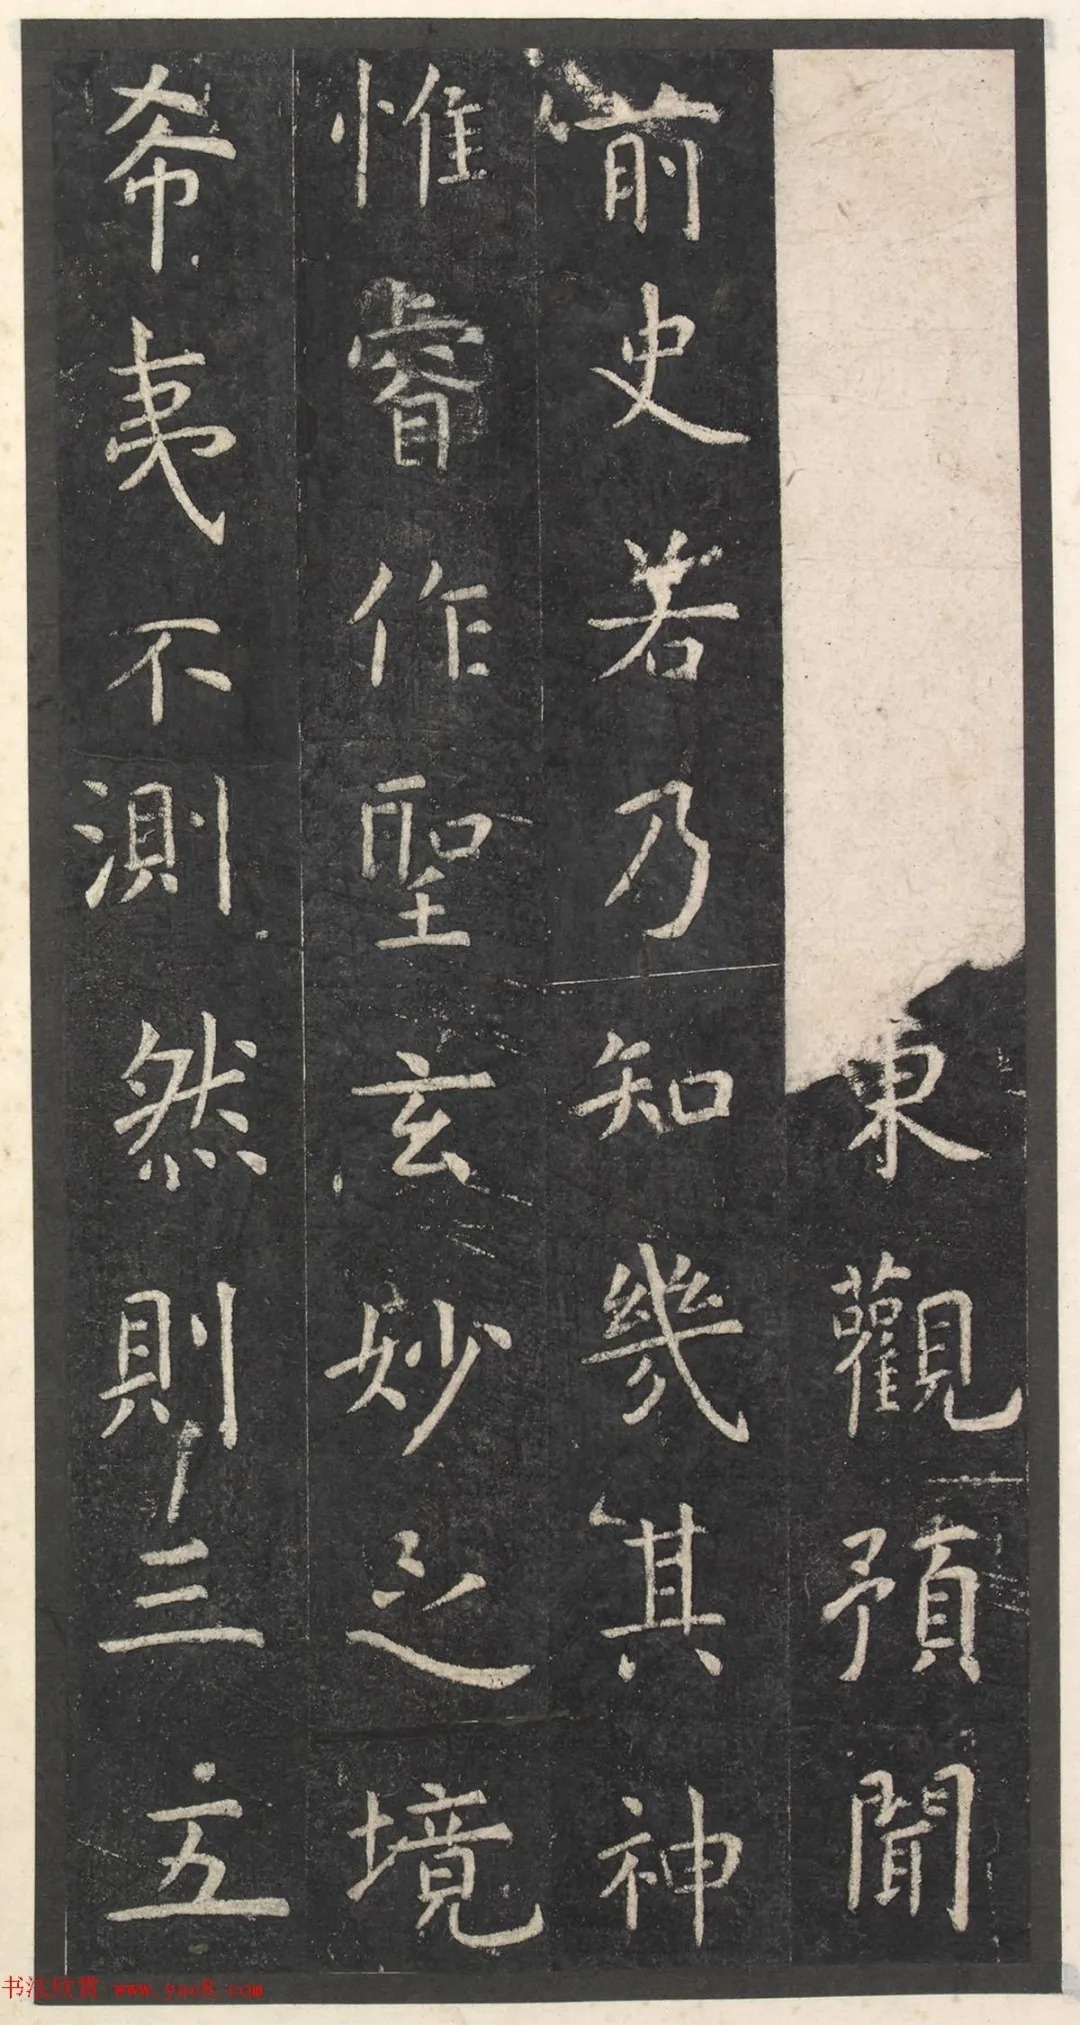 東觀預聞
前史若乃知幾其神
惟睿作聖玄妙之境
希夷不測然則三五
書法欣赏 www.yac8.com